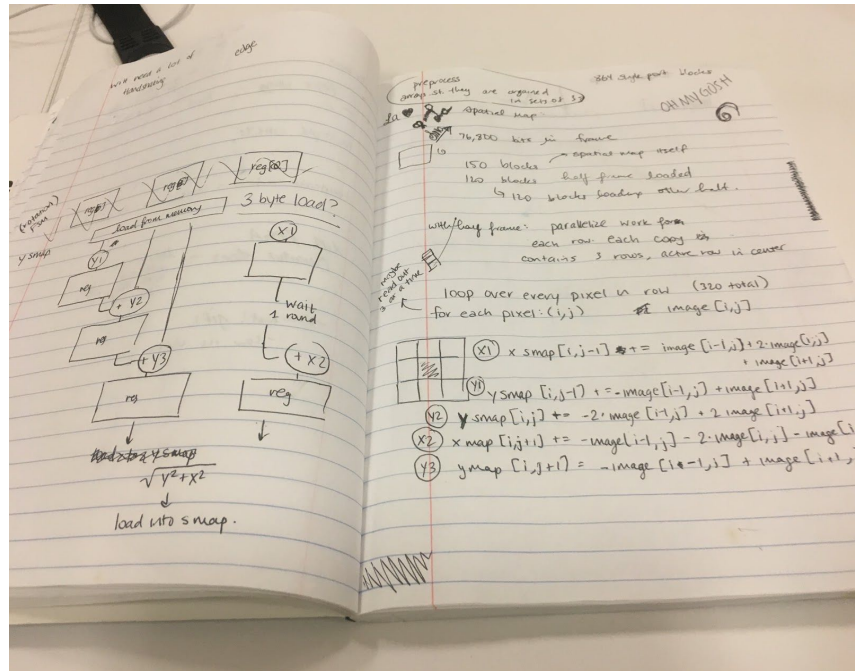 will need a lot of
handshaking
edge
reg
reg
reg[2]
(rotation)
FSM
load from memory
3 byte load?
y smap
y1
reg
+ y2
reg
+ y3
reg
x1
wait
1 round
+ x2
reg
√y²+x²
load into smap.
preprocess
array s.t. they are organized
in sets of 3
36k style port blocks
OH MY GOSH
spatial map
76,800 bits in frame
150 blocks spatial map itself
120 blocks half frame loaded
↳ 120 blocks loading other half.
with half frame: parallelize work for
each row. each copy
contains 3 rows, active row in center
maybe
read out
3 at a time
loop over every pixel in row (320 total)
for each pixel: (i,j) image [i,j]
x1 x smap [i,j-1] += image [i-1,j] + 2·image[i,j]
+ image [i+1,j]
y1 y smap [i,j-1] += -image[i-1,j] + image[i+1,j]
y2 y smap [i,j] += -2·image [i-1,j] + 2 image [i+1,j]
x2 x map [i,j+1] += -image[i-1,j] - 2·image[i,j] - image[i
y3 y map [i,j+1] = -image [i-1,j] + image [i+1,